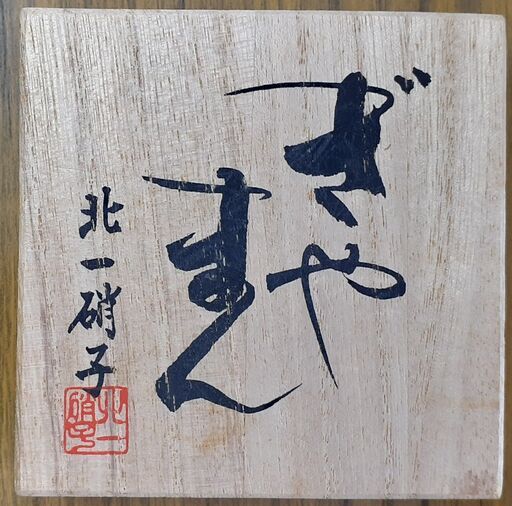 ぎや
まん
北一硝子
北一硝子